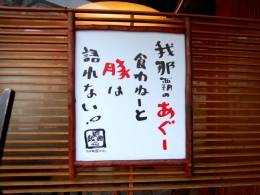 我那覇のあぐー
食わねーと
豚は
語れない。